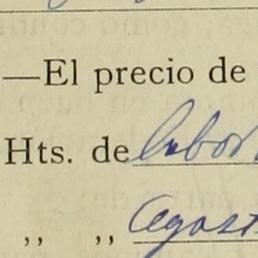 —El precio de
Hts. de labor
,, ,, Agost